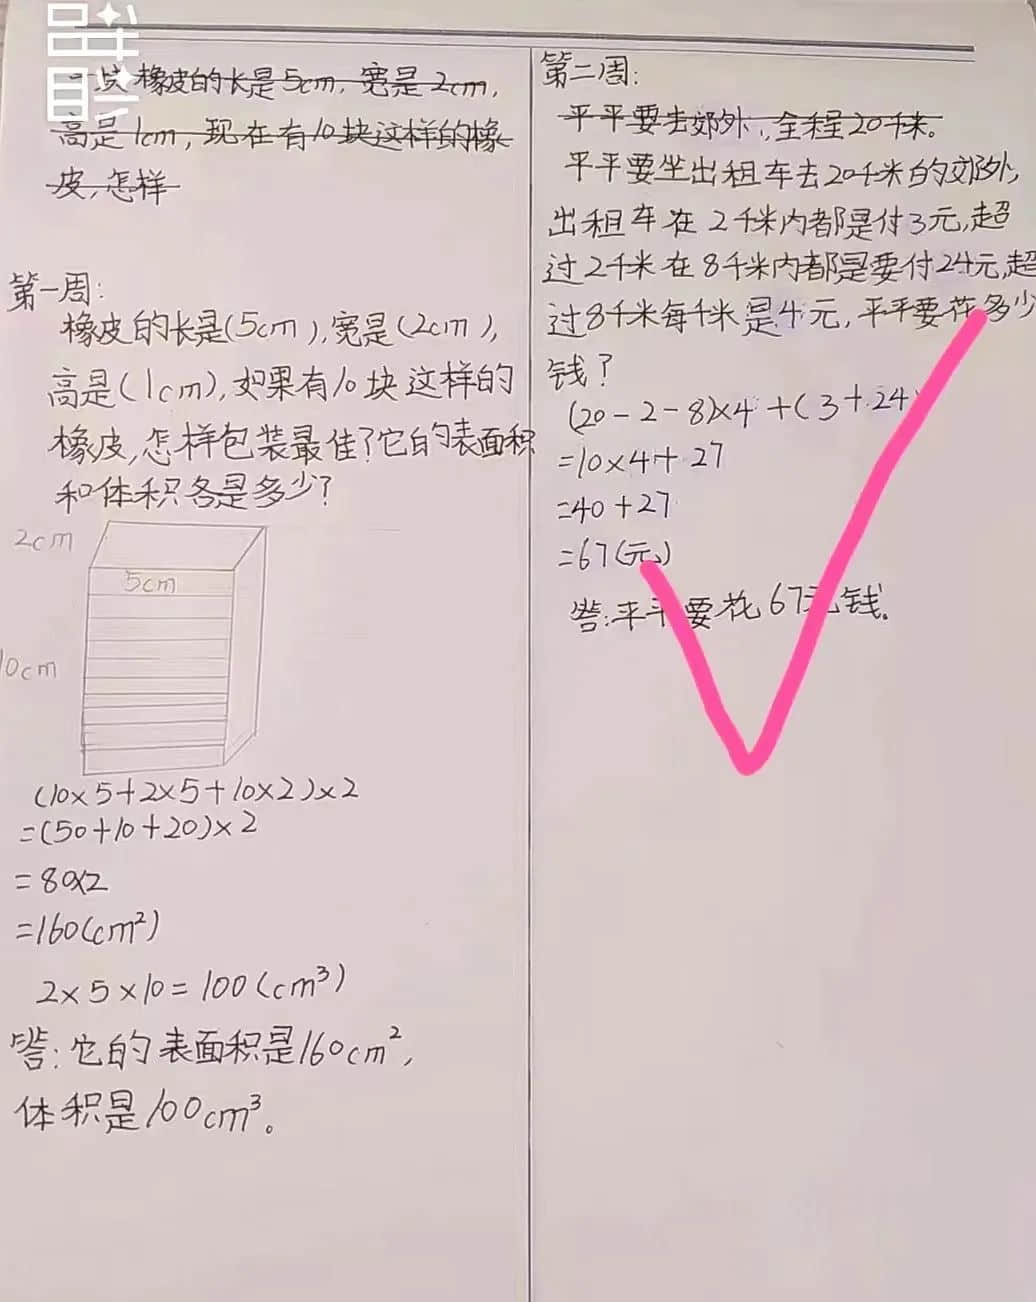 一块橡皮的长是5cm,宽是2cm,
高是1cm,现在有10块这样的橡
皮,怎样
第一周:
橡皮的长是(5cm),宽是(2cm),
高是(1cm),如果有10块这样的
橡皮,怎样包装最佳?它的表面积
和体积各是多少?
2cm
5cm
10cm
(10×5+2×5+10×2)×2
=(50+10+20)×2
=80×2
=160(cm²)
2×5×10=100(cm³)
答:它的表面积是160cm²,
体积是100cm³。
第二周:
平平要去郊外,全程20千米。
平平要坐出租车去20千米的郊外,
出租车在2千米内都是付3元,超
过2千米在8千米内都是要付24元,超
过8千米每千米是4元,平平要花多少
钱?
(20-2-8)×4+(3+24)
=10×4+27
=40+27
=67(元)
答:平平要花67元钱。